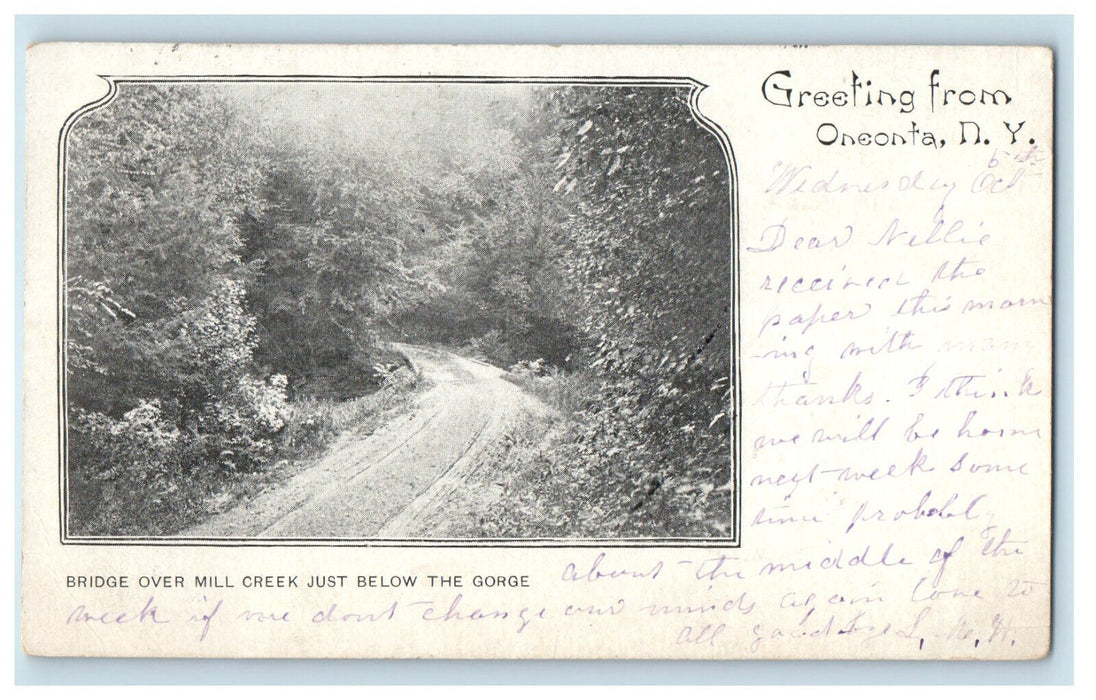 Greeting from
Oneonta, N. Y.
Wednesday Oct 5th
Dear Nellie
received the
paper this morn
-ing with many
thanks. I think
we will be home
next week some
time probabl
about the middle of the
week if we dont change our minds again love to
all good bye L. M. H.
BRIDGE OVER MILL CREEK JUST BELOW THE GORGE